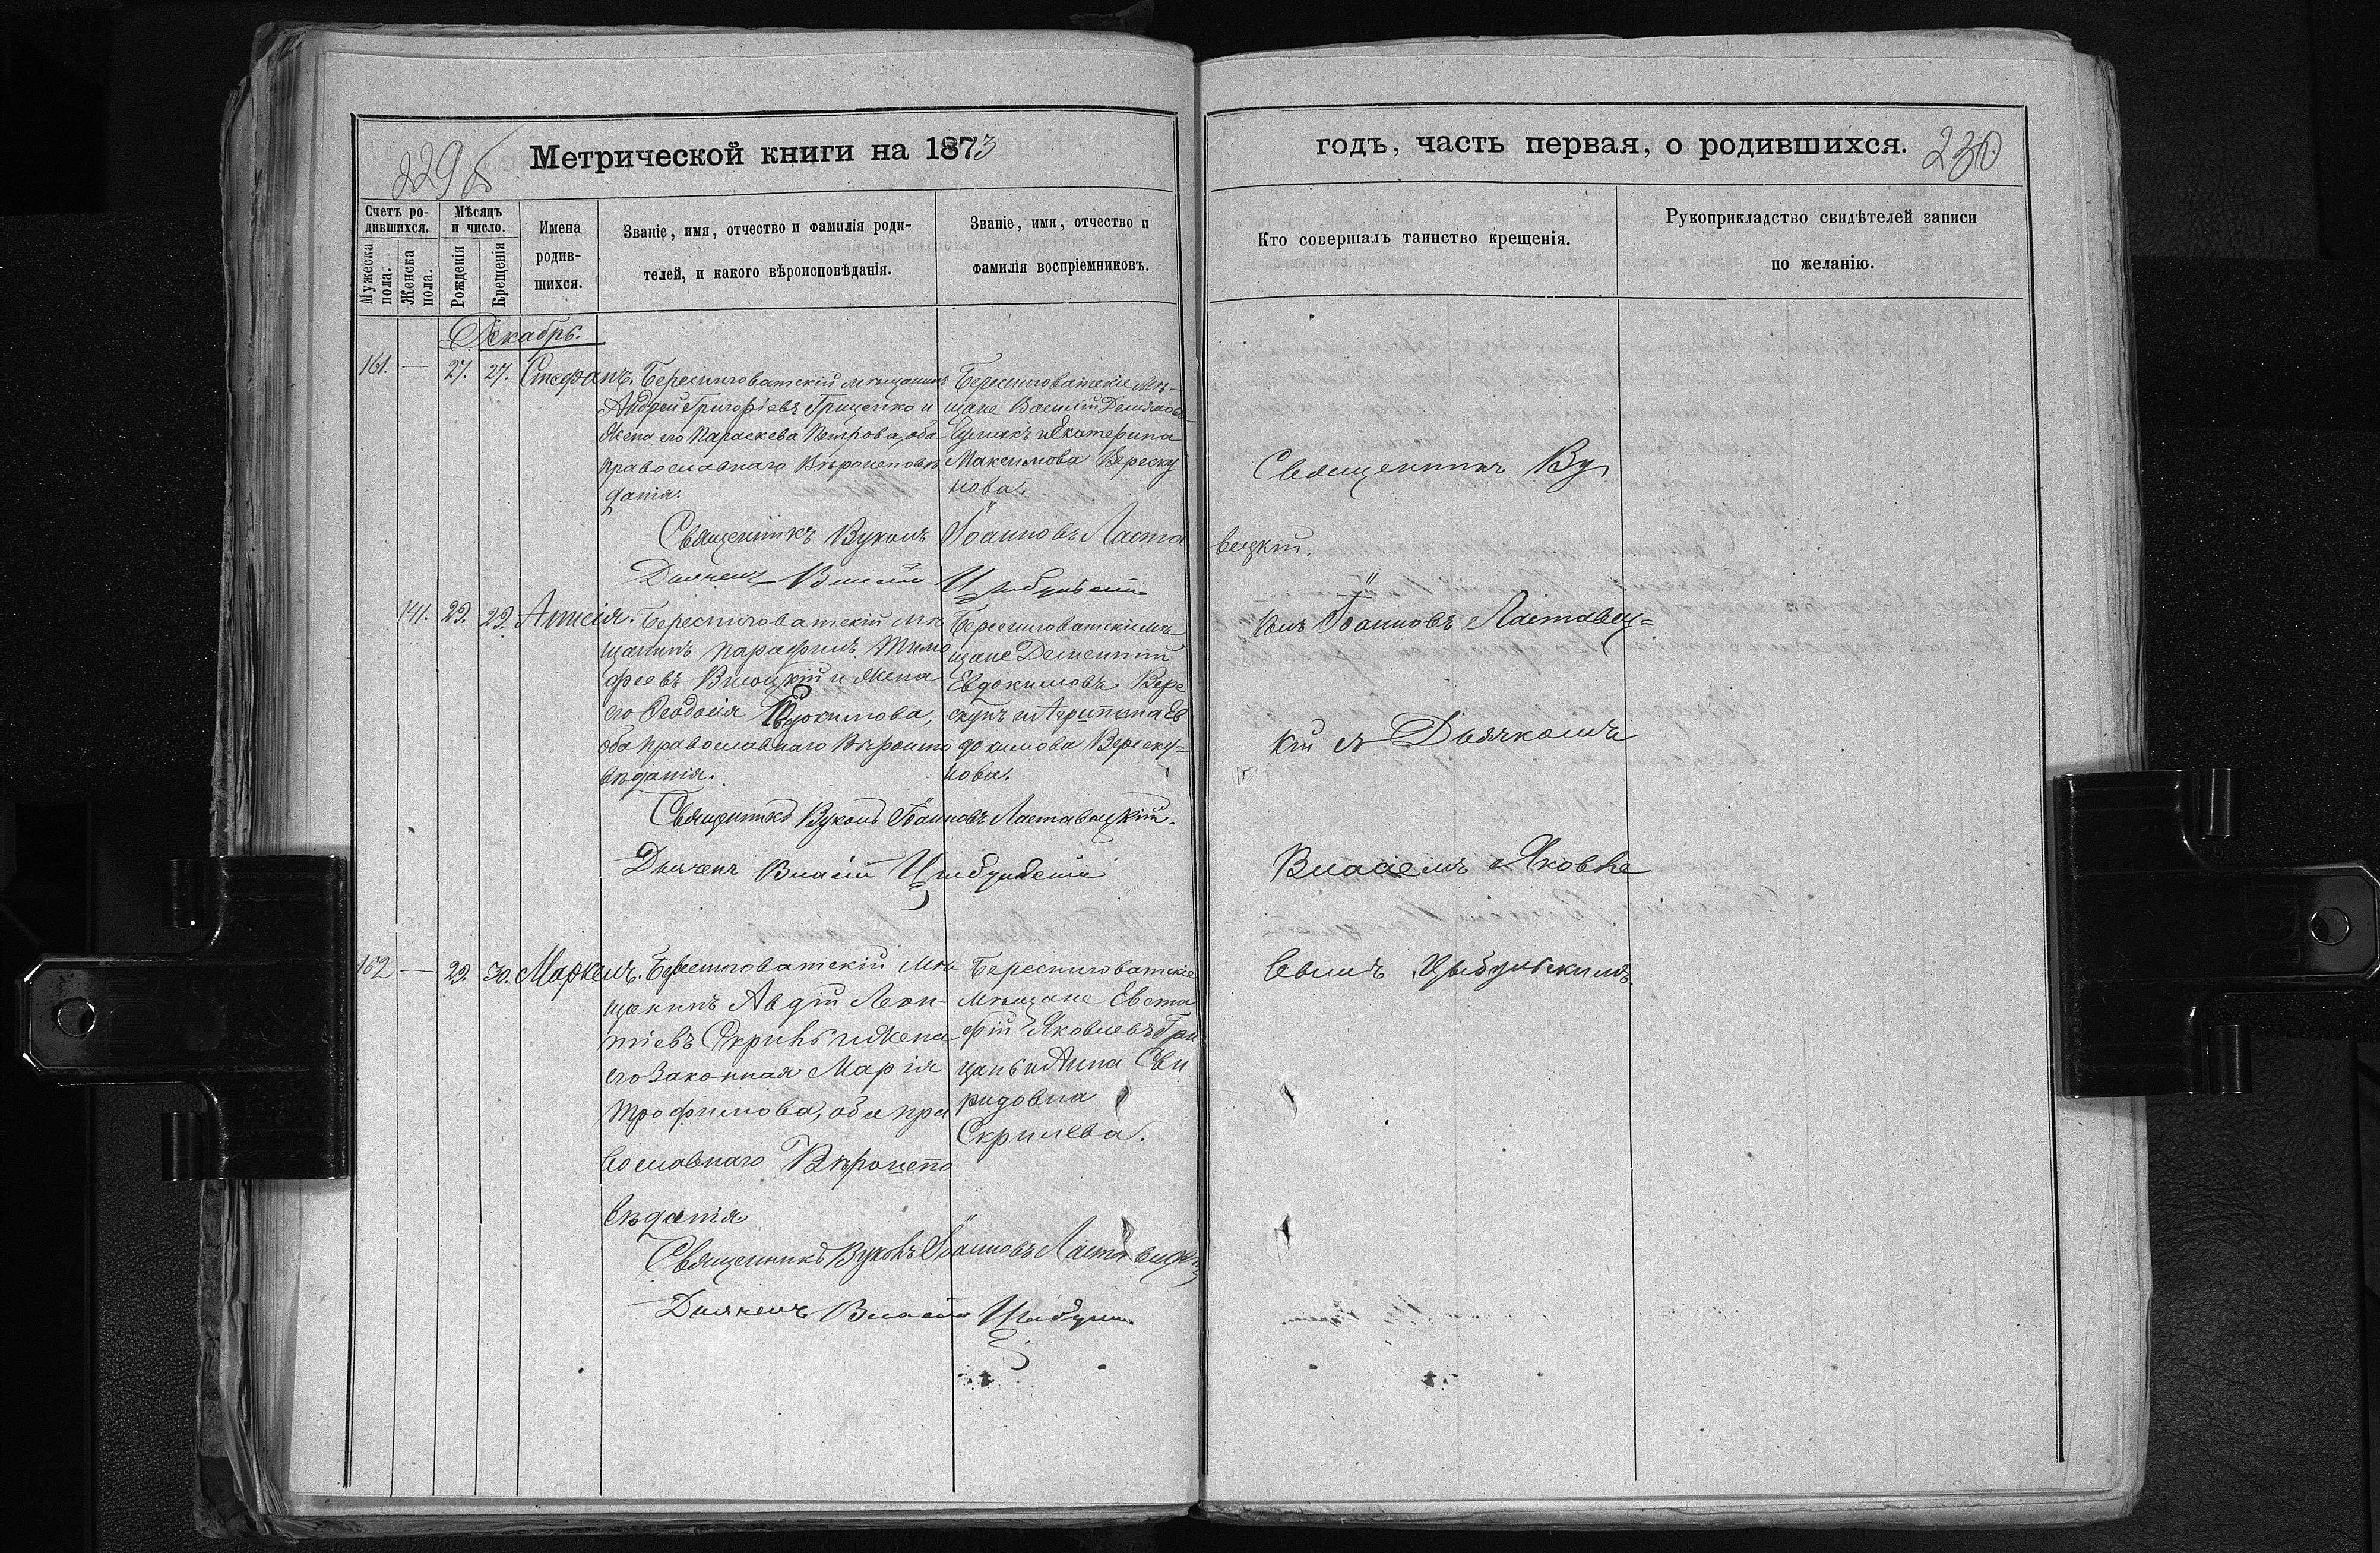 229 б
Метрической книги на 1873
годъ, часть первая, о родившихся.
230
Счетъ ро-
дившихся.
Мѣсяцъ
и число.
Мужеска
пола.
Женска
пола.
Рожденія
Крещенія
Имена
родив-
шихся.
Званіе, имя, отчество и фамилія роди-
телей, и какого вѣроисповѣданія.
Званіе, имя, отчество и
фамилія воспріемниковъ.
Кто совершалъ таинство крещенія.
Рукоприкладство свидѣтелей записи
по желанію.
Декабрь.
161. — 27. 27. Стефанъ.
Берестоговатскій мѣщанинъ
Андрей Григоріевъ Гриценко и
Жена его Параскева Петрова, оба
православнаго Вѣроисповѣ
данія.
Берестоговатскіе Мѣ-
щане Василій Демяновъ
и Екатерина
Максимова Вереску
нова.
Священникъ Вуколъ Іоанновъ Ласта
вецкій.
Дьячекъ Власій Цыбульскій
141. 29. 29.
Берестоговатскій мѣ
щанинъ Парафилъ Тимо
феевъ Высоцкій и Жена
его Феодосія Евдокимова,
оба православнаго Вѣроиспо
вѣданія.
Берестоговатскіе мѣ
щане Дементій
Евдокимовъ Вере
скунъ и Агрипина Ев
докимова Вереску-
нова.
Священникъ Вуколъ Іоанновъ Ластавецкій.
Дьячекъ Власій Цыбульскій
162 — 29. 30. Маркелъ.
Берестоговатскій Мѣ
щанинъ Авдій Леон-
тіевъ Скриль и Жена
его Законная Марія
Трофимова, оба пра
вославнаго Вѣроиспо
вѣданія
Берестоговатскіе
Мѣщане Евста
фій Яковлевъ Гри
цань и Анна Сви
ридовна
Скрилева.
Священникъ Вуколъ Іоанновъ Ластавецкій
Дьячекъ Власій Цыбульскій
Священникъ Ву
колъ Іоанновъ Ластавец=
кій съ Дьячкомъ
Власіемъ Яковле
вымъ Цыбульскимъ.